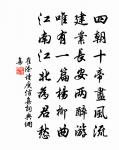 四朝十帝盡風流
建業長安兩醉游
唯有一篇楊柳曲
江南江北為君愁